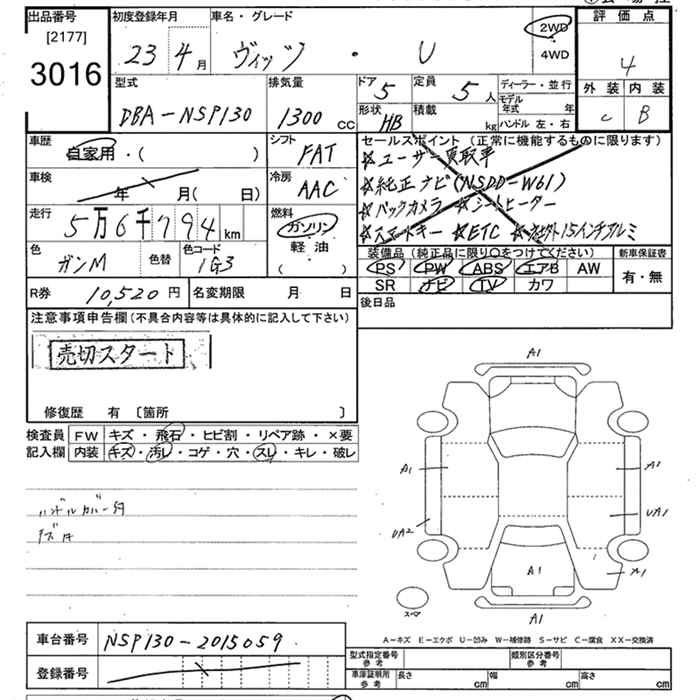 出品番号 [2177] 3016
初度登録年月 23 4月
車名・グレード ヴィッツ ・ U
2WD
4WD
評価点 4
外装 C 内装 B
型式 DBA-NSP130
排気量 1300 CC
ドア 5 定員 5人
形状 HB 積載 kg
ディーラー・並行
モデル年式 年
ハンドル 左・右
車歴 自家用・( )
シフト FAT
車検 年 月(日)
冷房 AAC
走行 5万6千794 km
燃料 ガソリン
軽油
( )
色 ガンM 色替 色コード 1G3
セールスポイント (正常に機能するものに限ります)
☆ユーザー買取車
☆純正ナビ(NSDD-W61)
☆バックカメラ ☆シートヒーター
☆スマートキー ☆ETC 15インチアルミ
装備品 (純正品に限り○をつけてください)
PS PW ABS エアB AW
SR ナビ TV カワ
新車保証書
有・無
R券 10,520円 名変期限 月 日
後日品
注意事項申告欄(不具合内容等は具体的に記入して下さい)
売切スタート
修復歴 有 〔箇所 〕
検査員記入欄
FW キズ・飛石・ヒビ割・リペア跡・×要
内装 キズ・汚レ・コゲ・穴・スレ・キレ・破レ
ハンドルカバー付
A1
A1
A2
UA2
UA1
A1
A1
A1
スペア
A-キズ E-エクボ U-凹み W-補修跡 S-サビ C-腐食 XX-交換済
車台番号 NSP130-2015059
登録番号
型式指定番号 参考 類別区分番号 参考
車庫証明用 参考 長さ cm 幅 cm 高さ cm